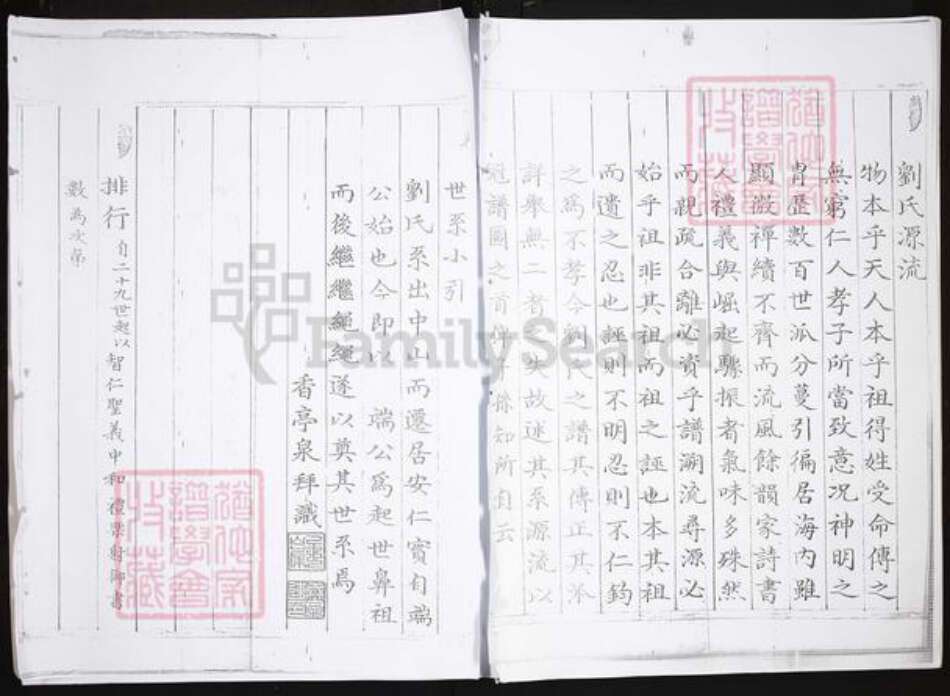 劉氏源流
物本乎天人本乎祖得姓受命傳之
無窮仁人孝子所當致意况神明之
胄歷數百世派分蔓引徧居海內雖
顯微禪續不齊而流風餘韻家詩書
人禮義與崛起驟振者氣味多殊然
而親疏合離必資乎譜溯流尋源必
始乎祖非其祖而祖之誣也本其祖
而遺之忍也誣則不明忍則不仁鈞
之為不孝今劉氏之譜其傳正其派
詳舉無二者失故述其系源流以
冠譜圖之首俾子孫知所自云
世系小引
劉氏系出中山而遷居安仁實自端
公始也今即以 端公爲起世鼻祖
而後繼繼繩繩遂以奠其世系焉
香亭泉拜識
排行 自二十九世起以智仁聖義中和禮樂射御書
數為次第
FamilySearch